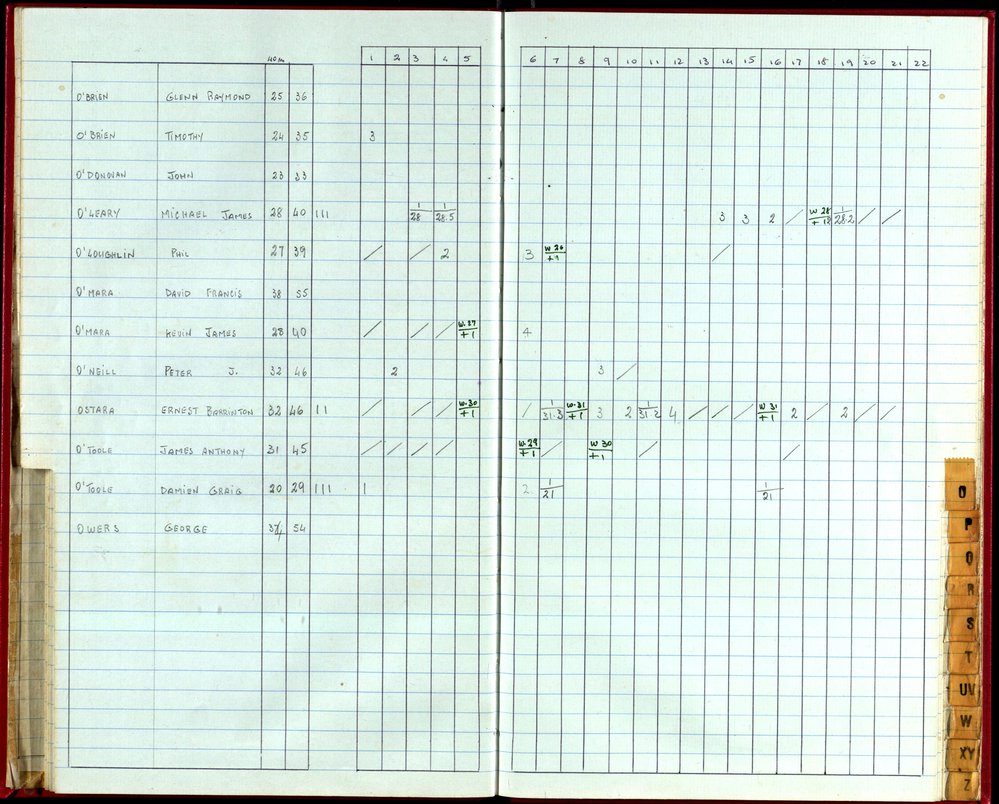 40m 1 2 3 4 5 6 7 8 9 10 11 12 13 14 15 16 17 18 19 20 21 22
O'BRIEN GLENN RAYMOND 25 36
O'BRIEN TIMOTHY 24 35 3
O'DONOVAN JOHN 23 33
O'LEARY MICHAEL JAMES 28 40 III 1/28 1/28.5 3 3 2 / W 28/+12 1/28.2 / /
O'LOUGHLIN PHIL 27 39 / / 2 3 W 26/+1 /
O'MARA DAVID FRANCIS 38 55
O'MARA KEVIN JAMES 28 40 / / / W.27/+1 4
O'NEILL PETER J. 32 46 2 3 /
OSTARA ERNEST BARRINTON 32 46 II / / / W.30/+1 / 1/31.3 W.31/+1 3 2 1/31.2 4 / / / W 31/+1 2 / 2 / /
O'TOOLE JAMES ANTHONY 31 45 / / / / W.29/+1 / W 30/+1 / /
O'TOOLE DAMIEN GRAIG 20 29 III 1 2 1/21 1/21
OWERS GEORGE 37 54
O
P
Q
R
S
T
UV
W
XY
Z